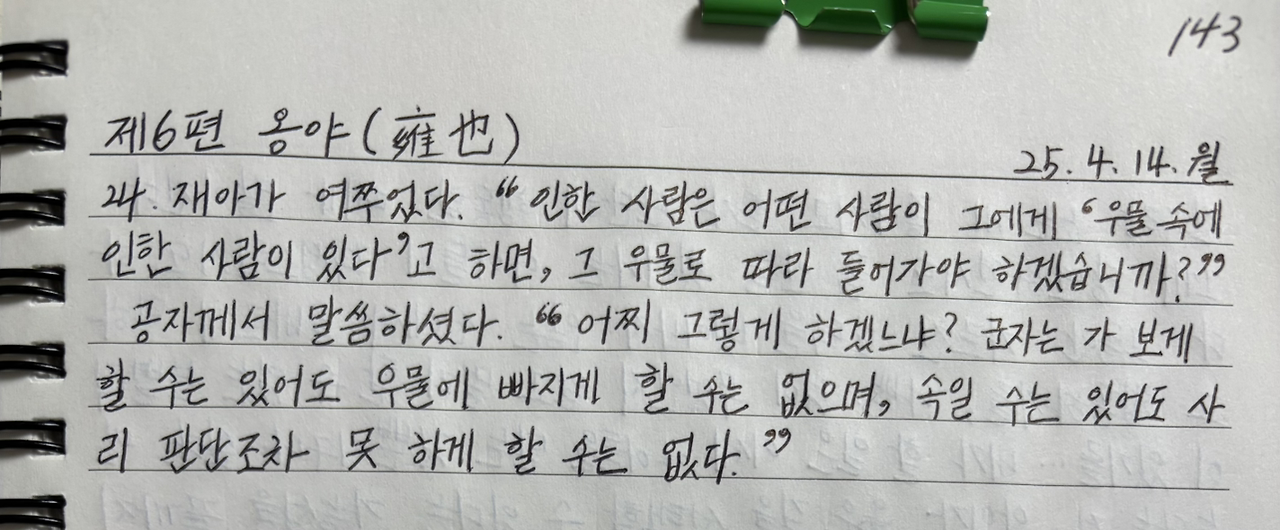 143
제6편 옹야(雍也)
25.4.14.월
24. 재아가 여쭈었다. "인한 사람은 어떤 사람이 그에게 '우물 속에
인한 사람이 있다'고 하면, 그 우물로 따라 들어가야 하겠습니까?"
공자께서 말씀하셨다. "어찌 그렇게 하겠느냐? 군자는 가 보게
할 수는 있어도 우물에 빠지게 할 수는 없으며, 속일 수는 있어도 사
리 판단조차 못 하게 할 수는 없다."